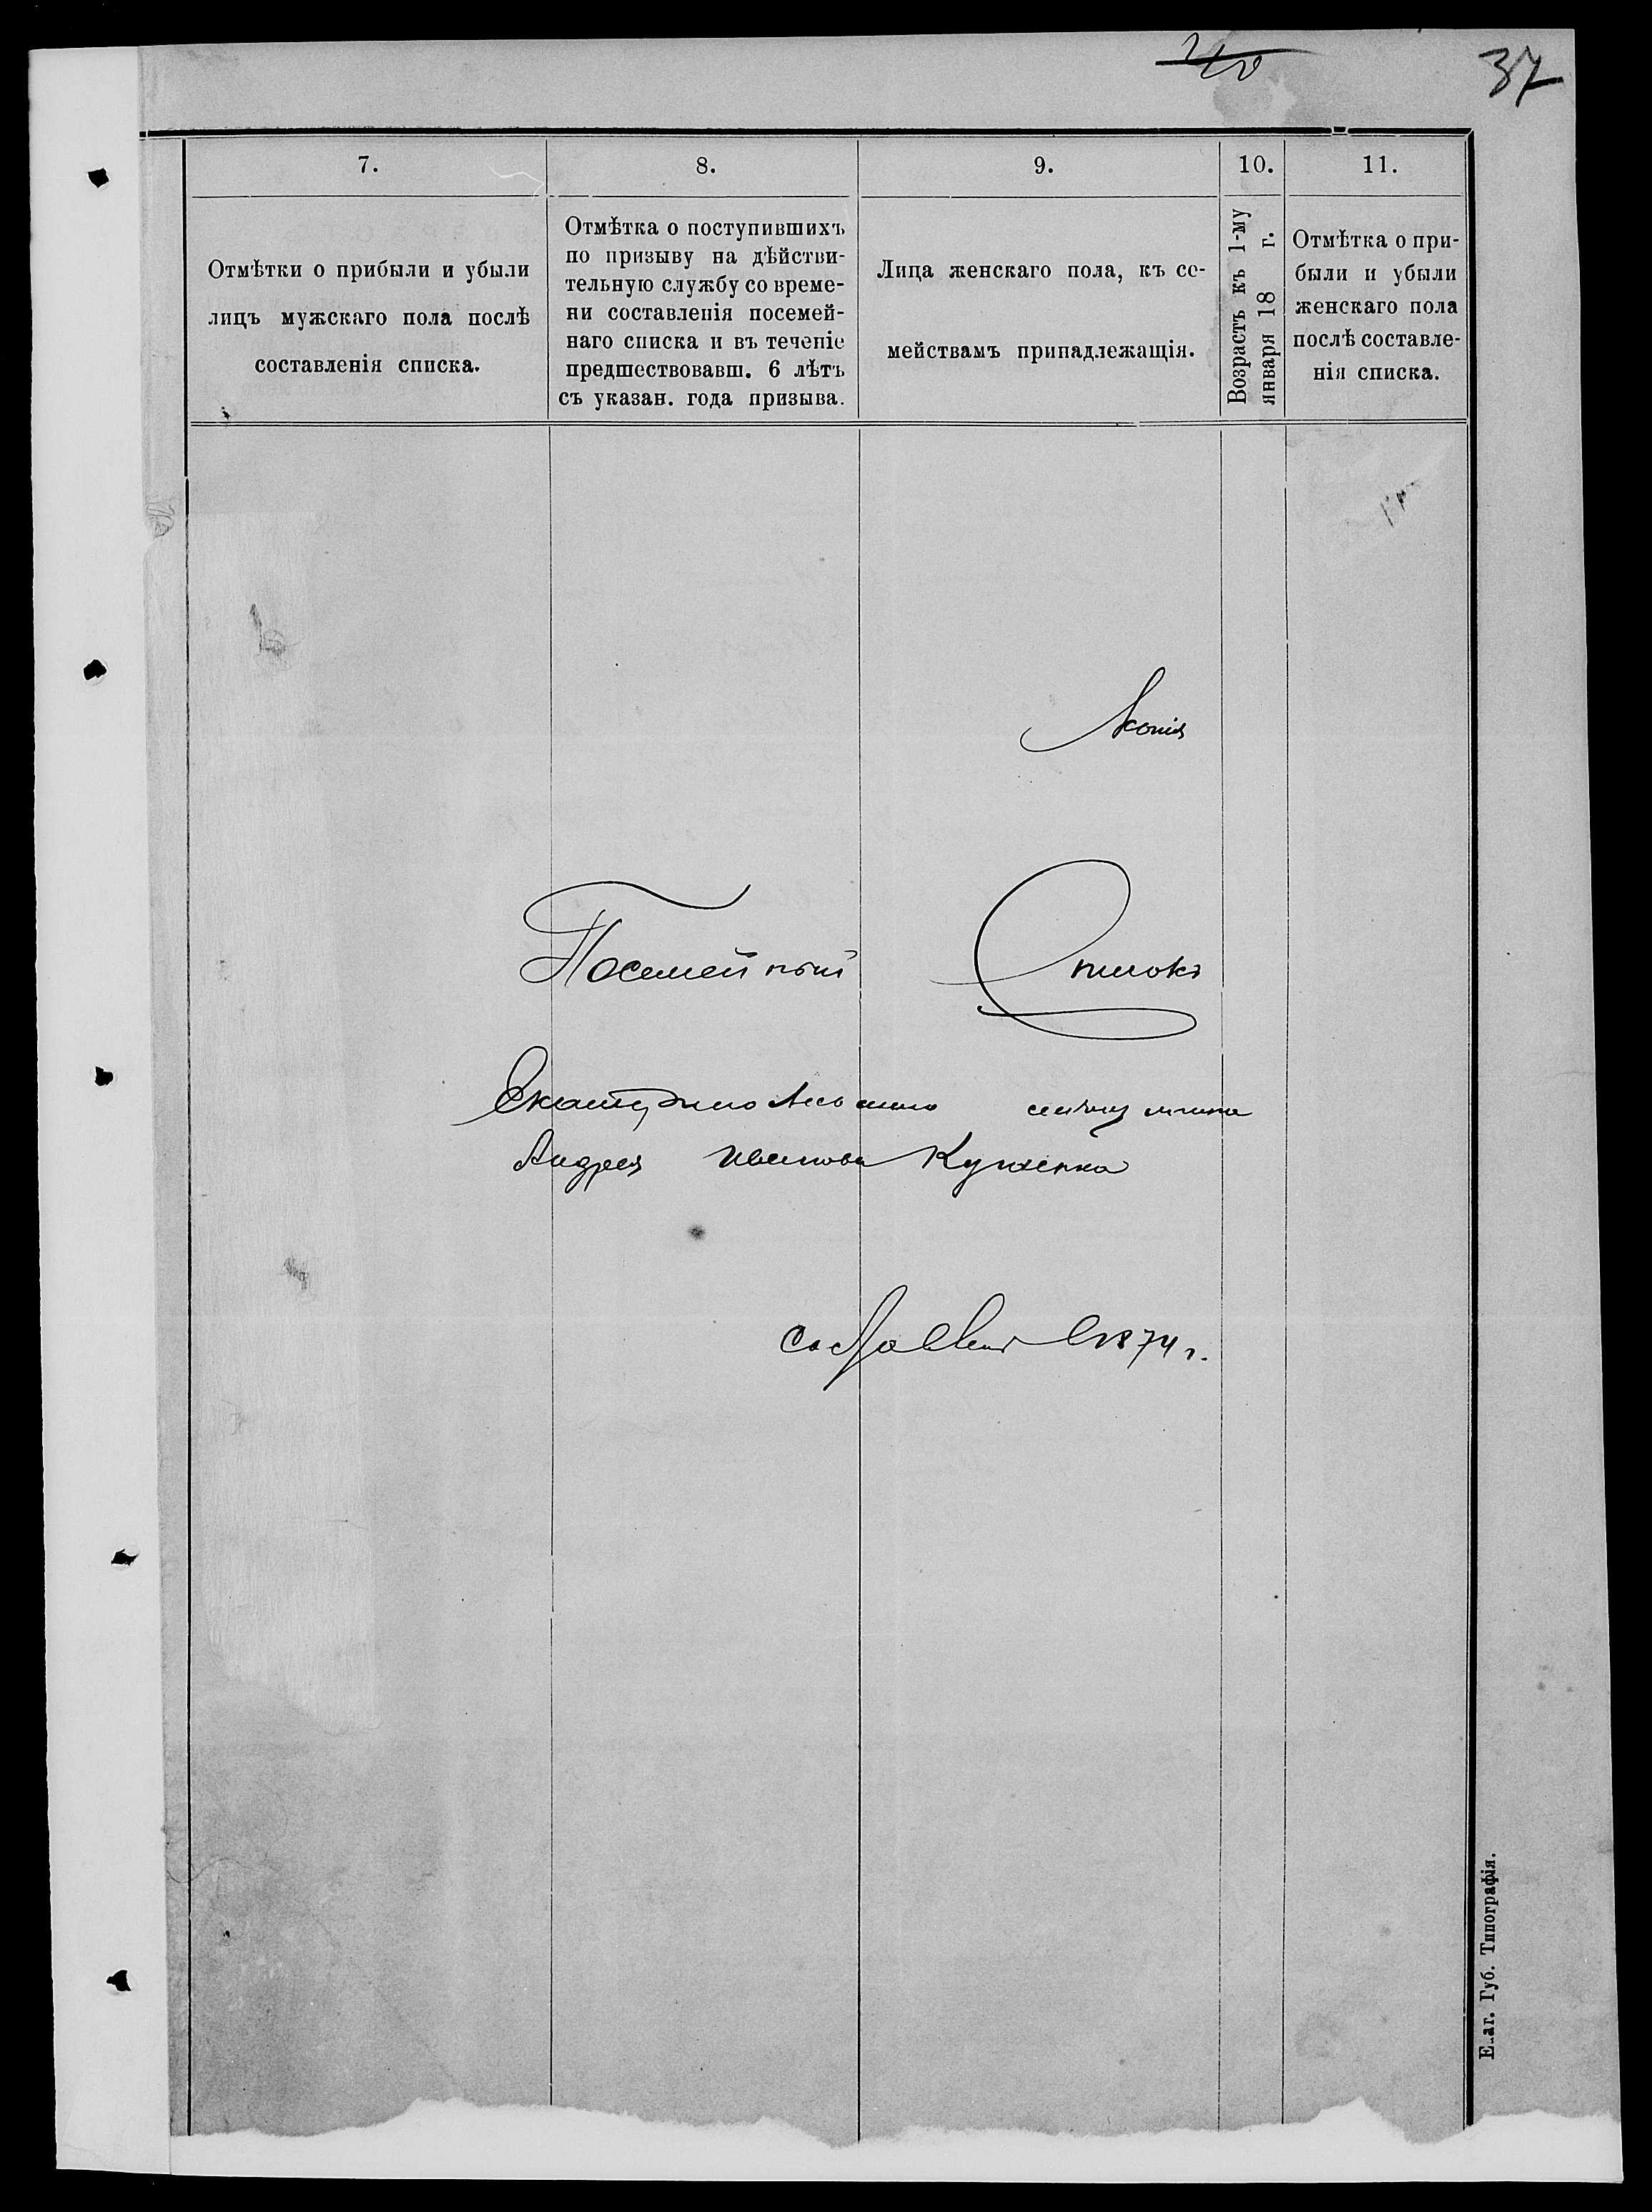 37
7. 8. 9. 10. 11.
Отмѣтки о прибыли и убыли
лицъ мужскаго пола послѣ
составленія списка.
Отмѣтка о поступившихъ
по призыву на дѣйстви-
тельную службу со време-
ни составленія посемей-
наго списка и въ теченіе
предшествовавш. 6 лѣтъ
съ указан. года призыва.
Лица женскаго пола, къ се-
мействамъ принадлежащія.
Возрастъ къ 1-му
января 18 г.
Отмѣтка о при-
были и убыли
женскаго пола
послѣ составле-
нія списка.
Копія
Посемейный Списокъ
Андрея Иванова Куценка
Составленъ 1874 г.
Губ. Типографія.